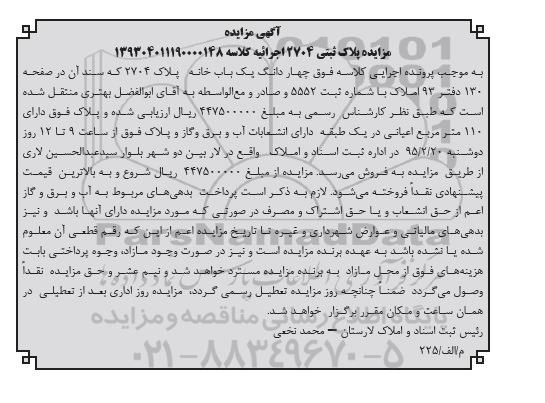 آگهی مزایده
مزایده پلاک ثبتی ۲۷۰۴ اجرائیه کلاسه ۱۳۹۳۰۴۰۱۱۱۹۰۰۰۰۱۴۸
به موجب پرونده اجرایی کلاسه فوق چهار دانگ یک باب خانه پلاک ۲۷۰۴ که سند آن در صفحه
۱۳۰ دفتر ۹۳ املاک با شماره ثبت ۵۵۵۲ و صادر و مع‌الواسطه به آقای ابوالفضل بهتری منتقل شده
است که طبق نظر کارشناس رسمی به مبلغ ۴۴۷۵۰۰۰۰۰ ریال ارزیابی شده و پلاک فوق دارای
۱۱۰ متر مربع اعیانی در یک طبقه دارای انشعابات آب و برق وگاز و پلاک فوق از ساعت ۹ تا ۱۲ روز
دوشنبه ۹۵/۲/۲۰ در اداره ثبت اسناد و املاک واقع در لار بین دو شهر بلوار سیدعبدالحسین لاری
از طریق مزایده به فروش می‌رسد. مزایده از مبلغ ۴۴۷۵۰۰۰۰۰ ریال شروع و به بالاترین قیمت
پیشنهادی نقداً فروخته می‌شود. لازم به ذکر است پرداخت بدهی‌های مربوط به آب و برق و گاز
اعم از حق انشعاب و یا حق اشتراک و مصرف در صورتی که مورد مزایده دارای آنها باشد و نیز
بدهی‌های مالیاتی و عوارض شهرداری و غیره تا تاریخ مزایده اعم از این که رقم قطعی آن معلوم
شده یا نشده باشد به عهده برنده مزایده است و نیز در صورت وجود مازاد، وجوه پرداختی بابت
هزینه‌های فوق از محل مازاد به برنده مزایده مسترد خواهد شد و نیم عشر و حق مزایده نقداً
وصول می‌گردد ضمناً چنانچه روز مزایده تعطیل رسمی گردد، مزایده روز اداری بعد از تعطیلی در
همان ساعت و مکان مقرر برگزار خواهد شد.
رئیس ثبت اسناد و املاک لارستان – محمد نخعی
م/الف/۲۲۵
ParsNamadData
پایگاه اطلاع رسانی مناقصه و مزایده
۰۲۱-۸۸۳۴۹۶۷۰-۵